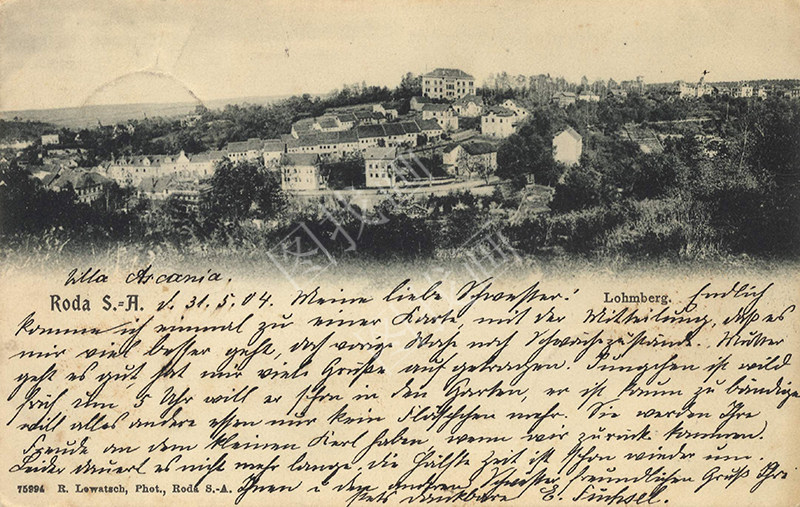 Villa Arcania.
Roda S.-A. d. 31.5.04. Meine liebe Schwester! Lohmberg. Endlich
komme ich einmal zu einer Karte, mit der Mitteilung, daß es
mir viel besser geht, das vorige Mal noch Schwächezustände. Mutter
geht es gut hat mir viele Grüße aufgetragen. Jungchen ist wild
früh um 5 Uhr will er schon in den Garten, er ist kaum zu bändigen
will alles andere essen nur kein Fläschchen mehr. Sie werden Ihre
Freude an dem kleinen Kerl haben, wenn wir zurück kommen.
Leider dauert es nicht mehr lange, die Hälfte Zeit ist schon wieder um.
75994 R. Lewatsch, Phot., Roda S.-A. Ihnen u. den anderen Schwester freundlichen Gruß Ihre
stets dankbare E. Füchsel.